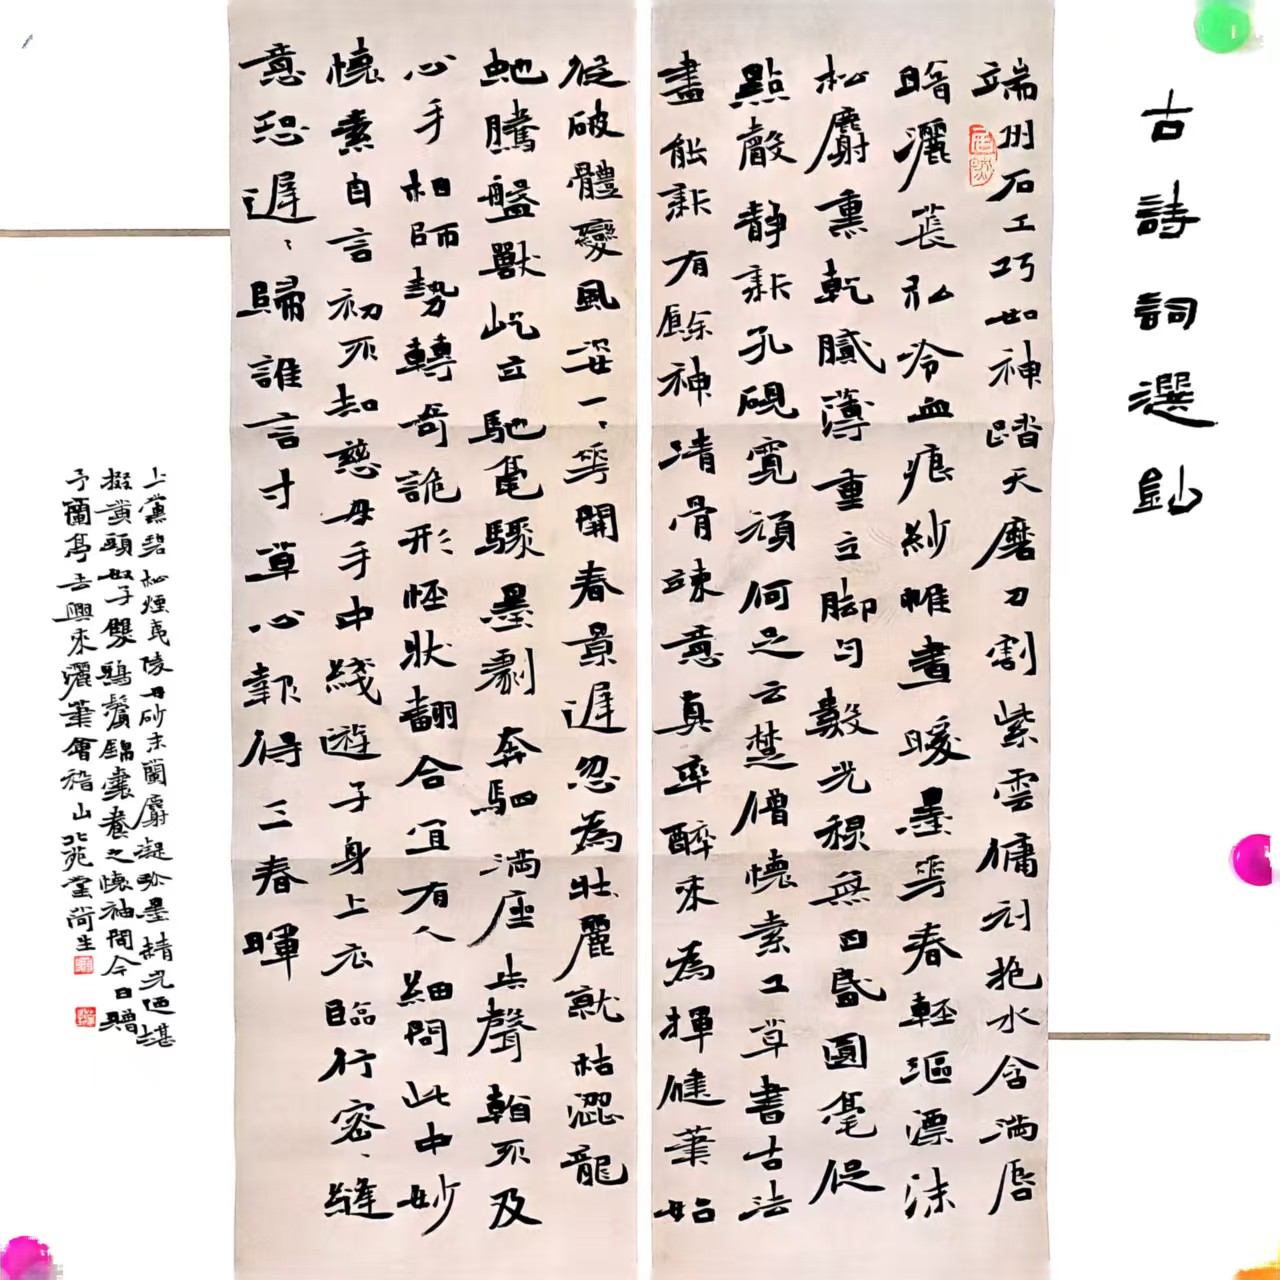 古詩詞選鈔
端州石工巧如神踏天磨刀割紫雲傭刓抱水含滿唇
暗灑萇弘冷血痕紗帷晝暖墨華春輕漚漂沫
松麝熏乾膩薄重立脚勻數光秋無日昏圓毫促
點聲靜新孔硯寬頑何足云楚僧懷素工草書古法
盡能新有餘神清骨竦意真率醉來為揮健筆始
從破體變風姿一〻華開春景遲忽為壯麗就枯澀龍
虵騰盤獸屹立馳毫驟墨劇奔駟滿座失聲看不及
心手相師勢轉奇詭形怪狀翻合宜有人細問此中妙
懷素自言初不知慈母手中綫遊子身上衣臨行密〻縫
意恐遲〻歸誰言寸草心報得三春暉
上黨碧松煙夷陵丹砂末蘭麝凝珍墨精光迺堪
掇黃頭奴子雙鴉鬟錦囊養之懷袖間今日贈
予蘭亭去興來灑筆會稽山北苑堂尚生